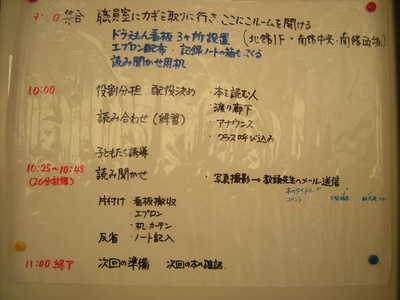 職員室にカギを取りに行き ここにこルームを開ける
ドラえもん看板 3ヶ所設置 (北棟1F・南棟中央・南棟西端)
エプロン配布・記録ノートの箱もってくる
読み聞かせ用机
10:00 役割分担 配役決め ・本を読む人
・渡り廊下
読み合わせ(練習) ・アナウンス
・クラス呼び込み
子どもたち誘導
10:25〜10:45 読み聞かせ ・写真撮影→教頭先生へメール送信
(20分放課)
片付け 看板撤収
・エプロン
・机・カーテン
反省 ・ノート記入
11:00 終了 次回の準備 次回の本の確認